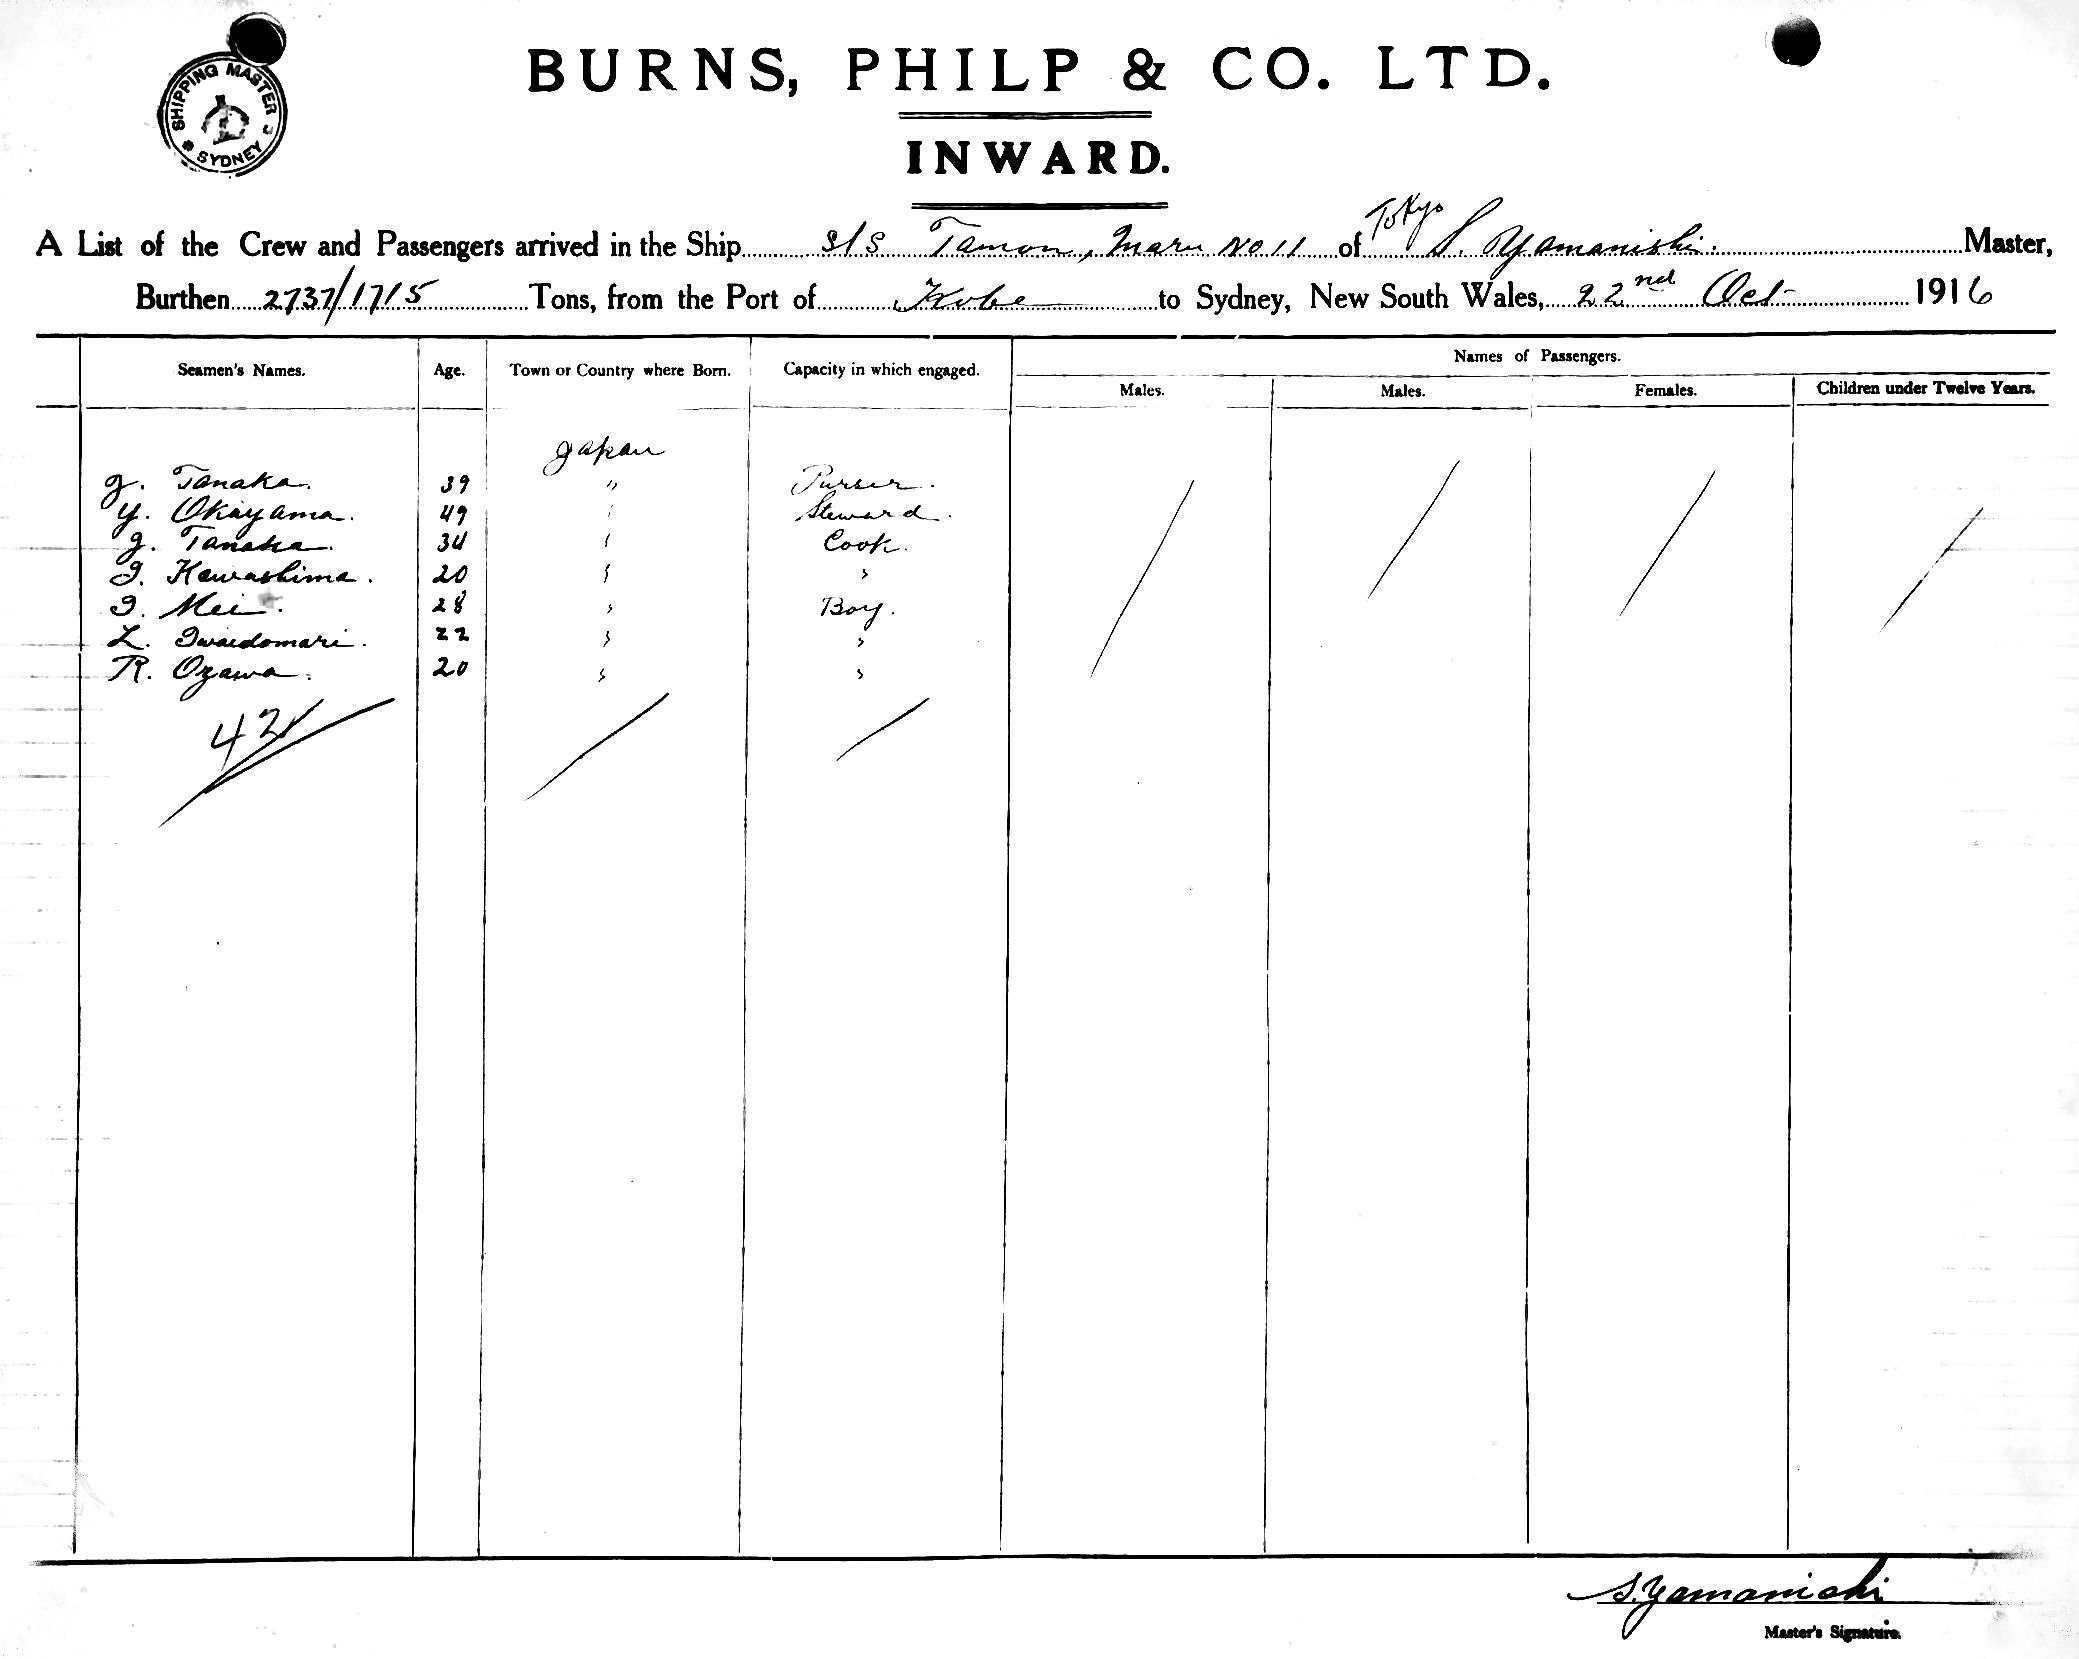 SHIPPING MASTER
SYDNEY
BURNS, PHILP & CO. LTD.
INWARD.
A List of the Crew and Passengers arrived in the Ship S/S Tamon, Maru No 11 of Tokyo S. Yamanishi. Master,
Burthen 2737/1715 Tons, from the Port of Kobe to Sydney, New South Wales, 22nd Oct 1916
Seamen's Names. Age. Town or Country where Born. Capacity in which engaged. Names of Passengers.
Males. Males. Females. Children under Twelve Years.
Japan
Tanaka. 39 " Purser.
Y. Okayama. 49 " Steward.
Tanaka. 34 " Cook.
Kawashima. 20 " "
Mei. 28 " Boy.
22 " "
R. Ozawa. 20 " "
42
S. Yamanishi
Master's Signature.